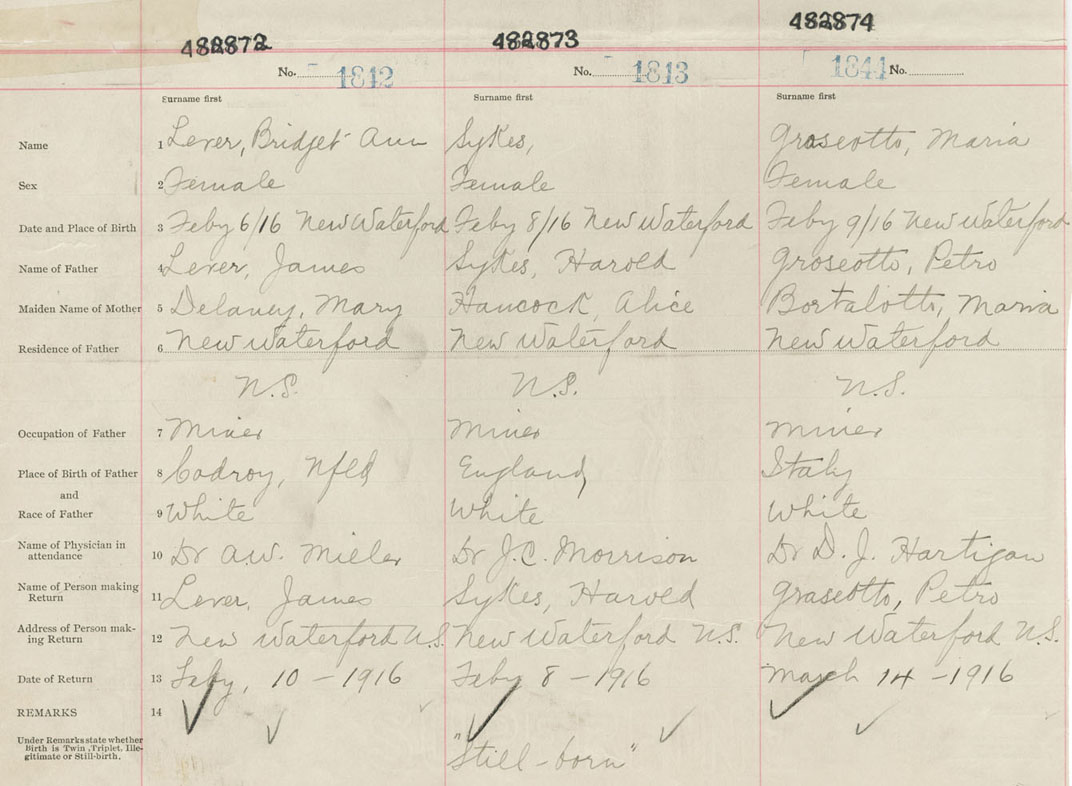 482872 482873 482874
No. 1842 No. 1843 1844 No.
Surname first Surname first Surname first
Name 1 Lever, Bridget Ann Sykes, Graseotto, Maria
Sex 2 Female Female Female
Date and Place of Birth 3 Feby 6/16 New Waterford Feby 8/16 New Waterford Feby 9/16 New Waterford
Name of Father 4 Lever, James Sykes, Harold Groseotto, Petro
Maiden Name of Mother 5 Delaney, Mary Hancock, Alice Bortalotto, Maria
Residence of Father 6 New Waterford New Waterford New Waterford
N.S. N.S. N.S.
Occupation of Father 7 Miner Miner Miner
Place of Birth of Father 8 Codroy, Nfld England, Italy
and
Race of Father 9 White White White
Name of Physician in
attendance 10 Dr A.W. Miller Dr J.C. Morrison Dr D. J. Hartigan
Name of Person making
Return 11 Lever, James Sykes, Harold Graseotto, Petro
Address of Person mak-
ing Return 12 New Waterford N.S. New Waterford N.S. New Waterford N.S.
Date of Return 13 Feby, 10 - 1916 Feby 8 - 1916 March 14 - 1916
REMARKS 14
Under Remarks state whether
Birth is Twin, Triplet, Ille-
gitimate or Still-birth.
"Still-born"